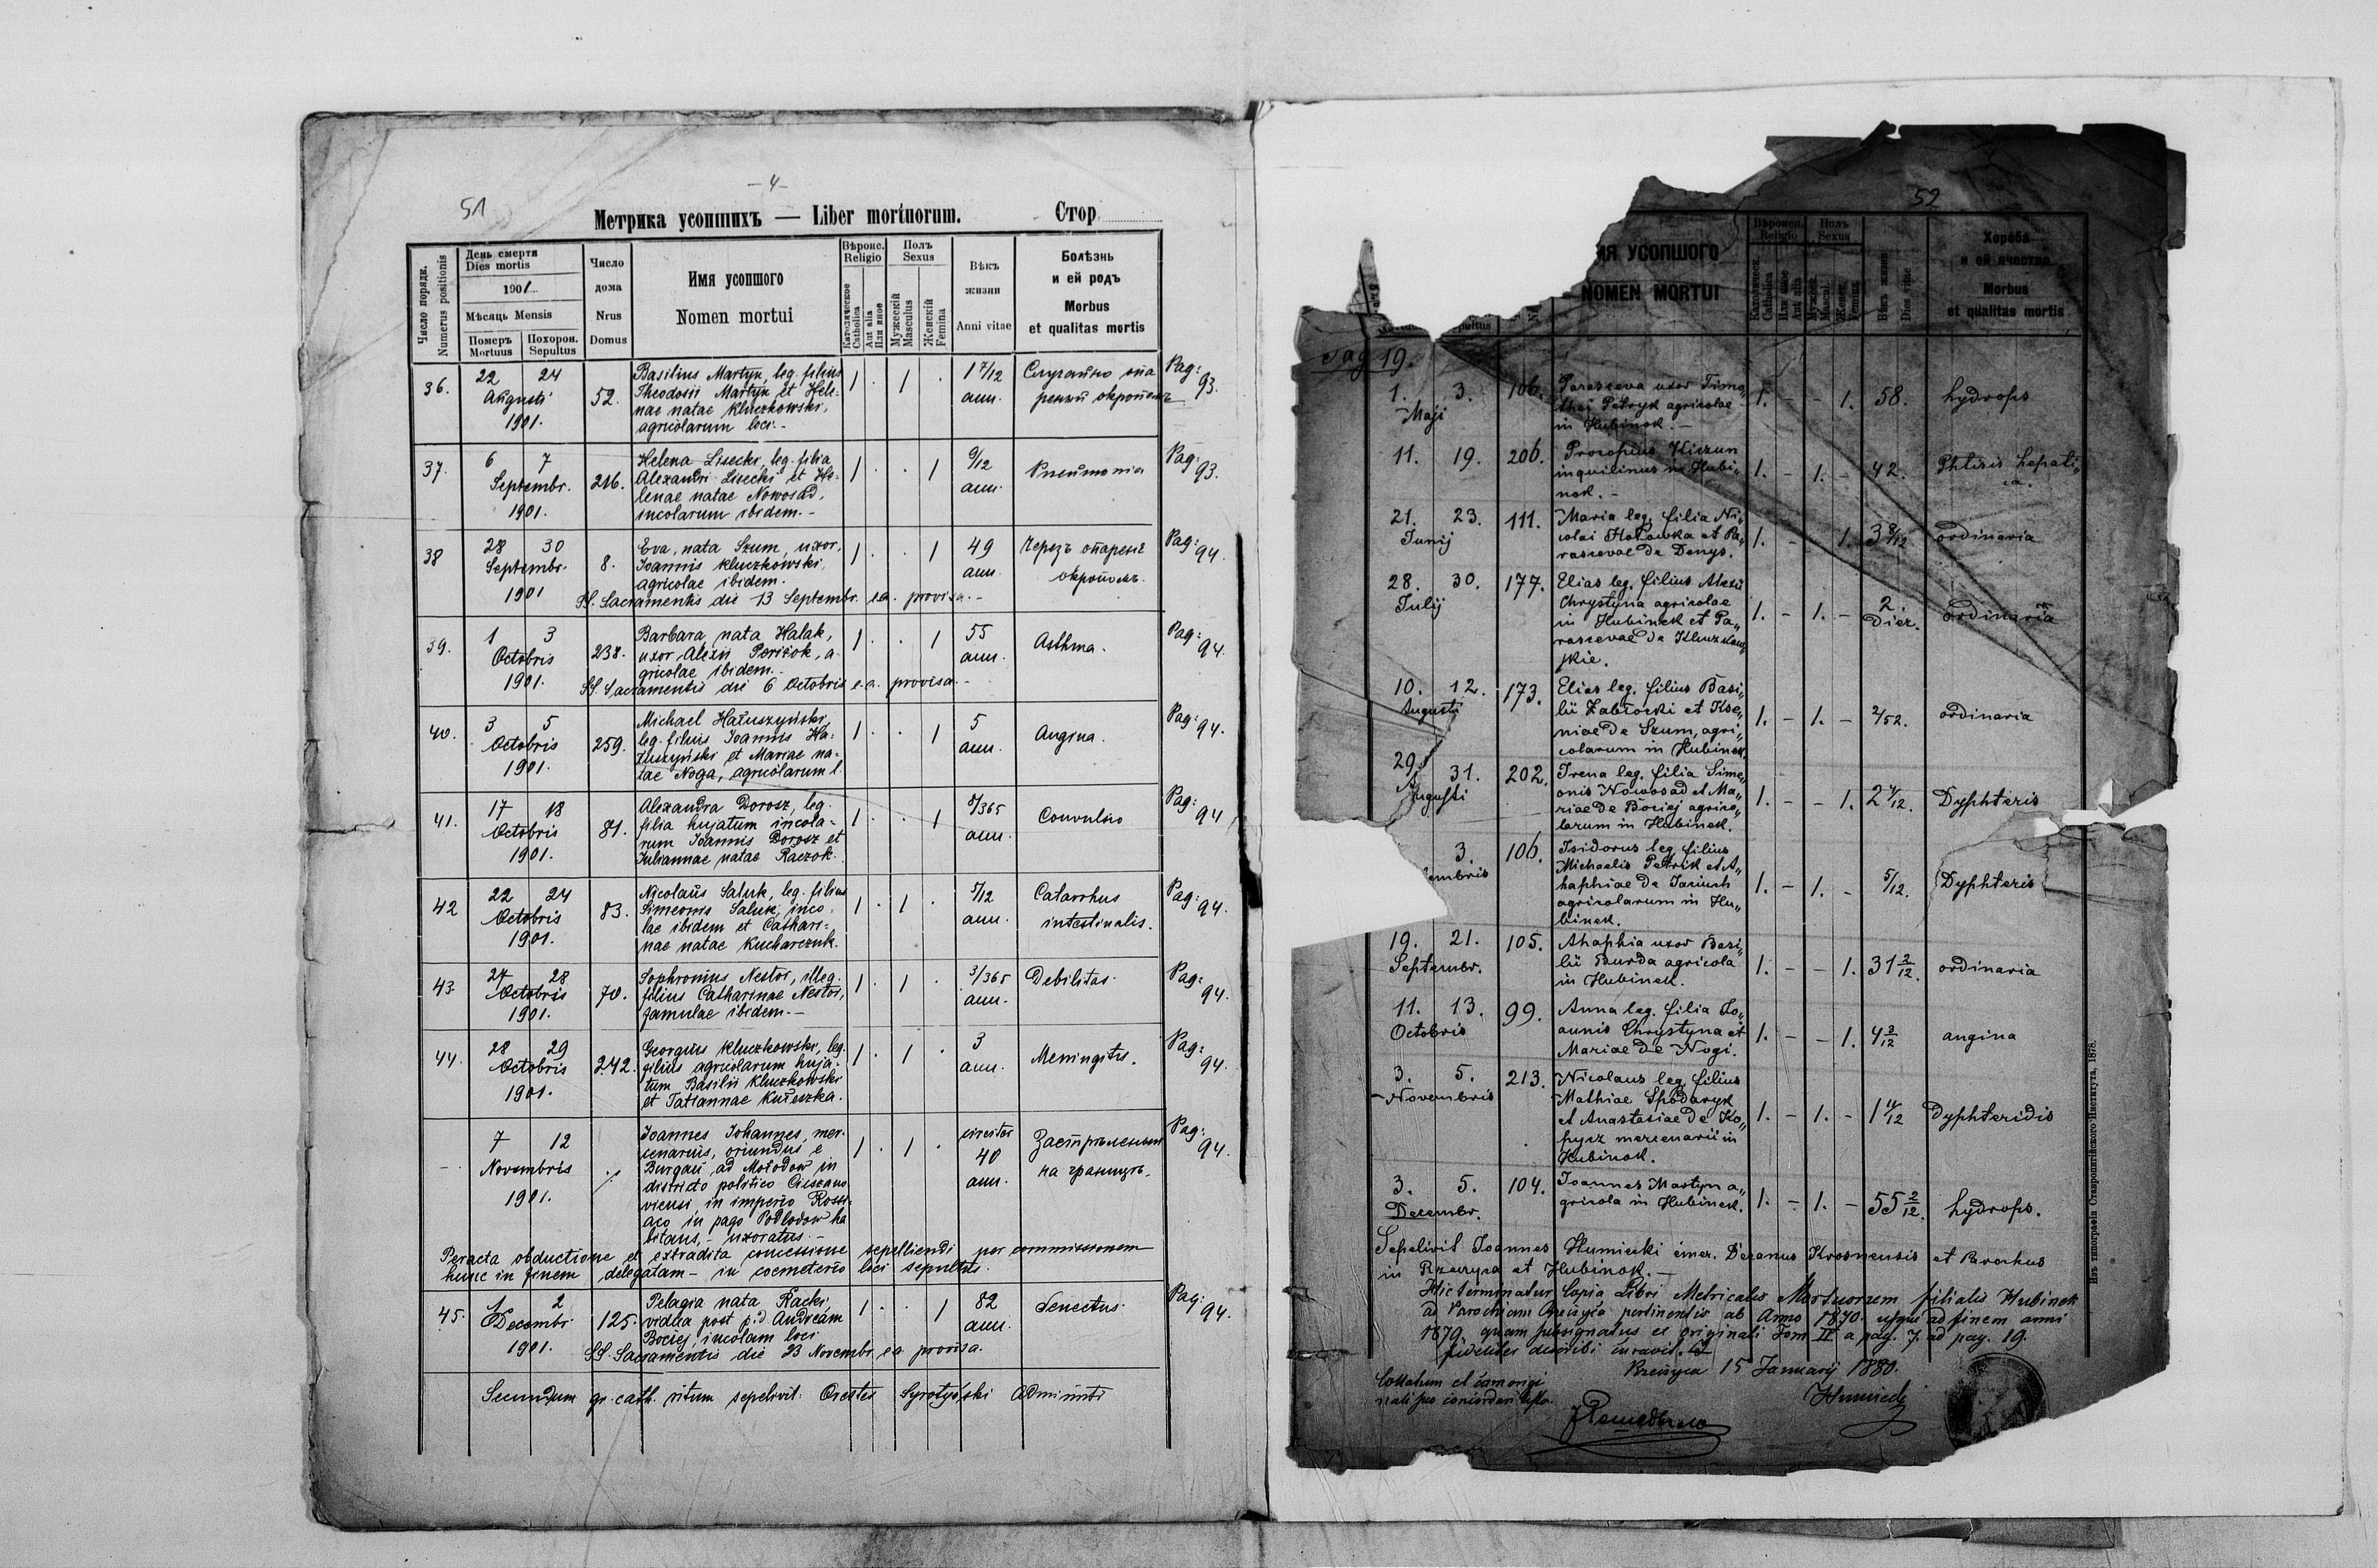 — 4 —
51
Метрика усопшихъ — Liber mortuorum. Стор
Число порядк.
Numerus positionis
День смерти
Dies mortis
1901
Мѣсяць Mensis
Померъ
Mortuus
Похорон.
Sepultus
Число
дома
Nrus
Domus
Имя усопшого
Nomen mortui
Вѣроис.
Religio
Католическое
Catholica
Aut alia
Или иное
Полъ
Sexus
Мужескій
Masculus
Женскій
Femina
Вѣкъ
жизни
Anni vitae
Болѣзнь
и ей родъ
Morbus
et qualitas mortis
36. 22 24 Augusti 1901. 52.
Basilius Martyn, leg. filius
Theodosii Martyn et Hele-
nae natae Kluczkowski,
agricolarum loci.-
1 . 1 . 1 7/12 ann. Случайно
окропомъ Pag: 93.
37. 6 7 Septembr. 1901. 216.
Helena Lisecki, leg. filia
Alexandri Lisecki et He-
lenae natae Nowosad,
incolarum ibidem.-
1 . . 1 9/12 ann. Pneumonia Pag: 93.
38 28 30 Septembr. 1901 8.
Eva, nata Szum, uxor
Joannis Kluczkowski,
agricolae ibidem.
SS. Sacramentis die 13 Septembr. e.a. provisa.-
1 . . 1 49 ann. Черезъ опарене
окропомъ. Pag: 94.
39. 1 3 Octobris 1901. 238.
Barbara nata Halak,
uxor Alexii, a-
gricolae ibidem.-
SS. Sacramentis die 6 Octobris e.a. provisa.-
1 . . 1 55 ann. Asthma. Pag: 94.
40. 3 5 Octobris 1901. 259.
Michael Hałuszyński,
leg. filius Joannis Ha-
łuszyński et Mariae na-
tae Noga, agricolarum l.
1 . . 1 5 ann. Angina. Pag: 94.
41. 17 18 Octobris 1901. 81.
Alexandra Dorosz, leg.
filia hujatum incola-
rum Joannis Dorosz et
Iuliannae natae Raczok.
1 . . 1 8/365 ann. Convulsio Pag: 94
42 22 24 Octobris 1901. 83.
Nicolaus Saluk, leg. filius
Simeonis Saluk, inco-
lae ibidem et Cathari-
nae natae Kucharczuk.
1 . 1 . 5/12 ann. Catarrhus
intestinalis. Pag: 94.
43. 27 28 Octobris 1901. 70.
Sophronius Nestor, illeg.
filius Catharinae Nestor,
famulae ibidem.-
1 . 1 . 3/365 ann. Debilitas. Pag: 94.
44. 28 29 Octobris 1901. 242.
Georgius Kluczkowski, leg.
filius agricolarum huja-
tum Basilii Kluczkowski
et Tatiannae Kułeszka.
1 . 1 . 3 ann. Meningitis. Pag: 94.
- 7 12 Novembris 1901. ./.
Joannes Johannes, mer-
cenarius, oriundus e
Burgau ad Mołodow in
districto politico Cieszano
viensi, in imperio Rossi-
aco in pago Podlodow ha
bitans, - uxoratus.-
1 . 1 . circiter 40 ann. Застрѣленый
на границѣ. Pag: 94.
Peracta obductione et extradita concessione sepelliendi per commissionem
hunc in finem delegatam - in coemeterio loci sepultus.
45. 1 2 Decembr. 1901. 125.
Pelagia nata Racki,
vidua post p.d. Andream
Bociej, incolam loci
SS. Sacramentis die 23 Novembr. e.a. provisa.
1 . . 1 82 ann. Senectus. Pag: 94.
Secundum gr. cath. ritum sepelivit: Orestes Syrotyński Administr
52
ИЯ УСОПШОГО
NOMEN MORTUI
Вѣроисп.
Religio
Католическ.
Catholica
Или иное
Aut alia
Полъ
Sexus
Мужеск.
Mascul.
Женск.
Femina
Вѣкъ жизни
Dies vitae
Хороба
и ей ячество
Morbus
et qualitas mortis
pultus
pag 19.
1. 3. Maji 106.
Parasceva uxor Timo„
thei Petryk agricolae
in Hubinek.-
1. - - 1. 58. hydrops
11. 19. 206.
Procopius Kiczun
inquilinus in Hubi„
nek.-
1. - 1. - 42. Phtisis hepati„
ca.
21. 23. Junij 111.
Maria leg. filia Ni„
colai Hołowka et Pa„
rascevae de Denys.
1. - - 1. 3 8/12 ordinaria
28. 30. Julij 177.
Elias leg. filius Alexii
Chrystyna agricolae
in Hubinek et Pa„
rascevae de Kluczkow„
skie.
1. - 1. - 2. Diez. ordinaria
10. 12. Augusti 173.
Elias leg. filius Basi„
lii Zabłocki et Xse„
niae de Szum, agri„
colarum in Hubinek.
1. - 1. - 2/52. ordinaria
29. 31. Augusti 202.
Irena leg. filia Sime„
onis Nowosad et Ma„
riae de Bociej agrico„
larum in Hubinek.
1. - - 1. 2 4/12. Dyphteris
3. embris 106.
Isidorus leg. filius
Michaelis Petrik et A„
haphiae de Jariush
agricolarum in Hu„
binek.
1. - 1. - 5/12. Dyphteris
19. 21. Septembr. 105.
Ahaphia uxor Basi„
lii Burda agricola
in Hubinek.
1. - - 1. 31 2/12. ordinaria
11. 13. Octobris 99.
Anna leg. filia Jo„
annis Chrystyna et
Mariae de Nogi.
1. - - 1. 4 2/12 angina
3. 5. Novembris 213.
Nicolaus leg. filius
Mathiae Spodaryk
et Anastasiae de Ko„
pycz mercenarii in
Hubinek.
1. - 1. - 1 11/12 dyphteridis
3. 5. Decembr. 104.
Joannes Martyn a„
gricola in Hubinek.
1. - 1. - 55 2/12. hydrops.
Sepelivit Joannes Humiecki emer. Decanus Krosnensis et Parochus
in Rzeczyca et Hubinek.-
Hic terminatur Copia Libri Metricalis Mortuorum filialis Hubinek
ad Parochiam Rzeczyca pertinentis ab Anno 1870. usque ad finem anni
1879. quam subsignatus ex originali Tom II a pag. 7. ad pag. 19.
fideliter describi curavit.
Rzeczyca 15 Januarij 1880.
Collatum et cum origi
nali suo concordari testor.
Humiecki
Изъ типографіи Ставропигійского Института, 1878.